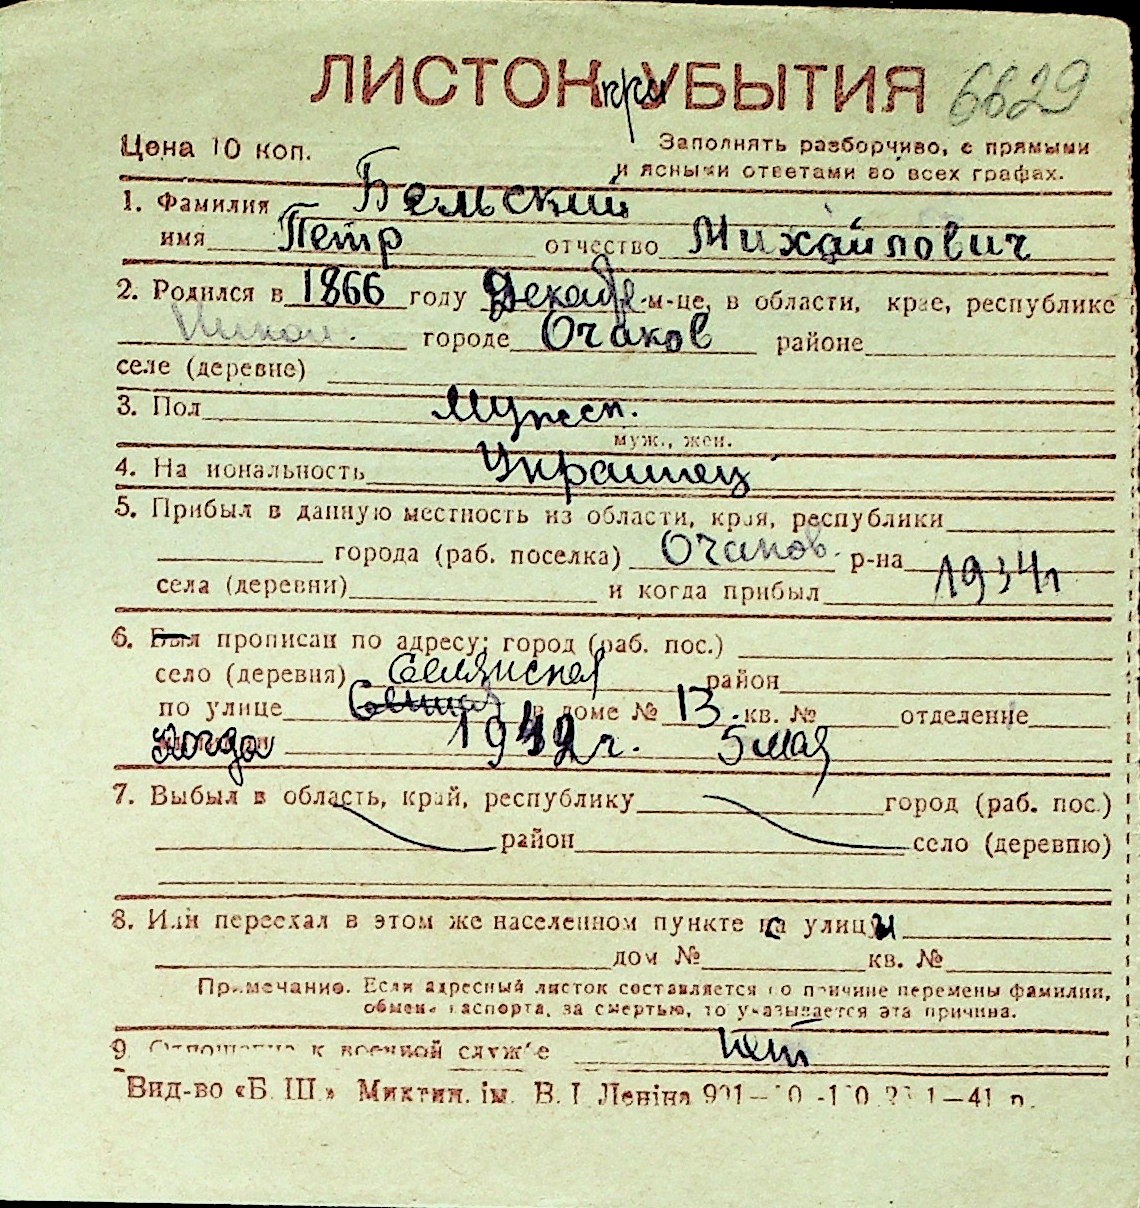 ЛИСТОК при УБЫТИЯ 6629
Цена 10 коп. Заполнять разборчиво, с прямыми
и ясными ответами во всех графах.
1. Фамилия Бельский
имя Петр отчество Михайлович
2. Родился в 1866 году Декабре м-це, в области, крае, республике
Никол. городе Очаков районе
селе (деревне)
3. Пол Мужск.
муж., жен.
4. На иональность Украинец
5. Прибыл в данную местность из области, края, республики
города (раб. поселка) Очаков р-на
села (деревни) и когда прибыл 1934 г
6. Был прописан по адресу: город (раб. пос.)
село (деревня) Селянская район
по улице в доме № 13. кв. № отделение
Когда г. 5 мая
7. Выбыл в область, край, республику город (раб. пос.)
район село (деревню)
8. Или переехал в этом же населенном пункте с улицы
дом № кв. №
Примечание. Если адресный листок составляется по причине перемены фамилии,
обмена паспорта, за смертью, то указывается эта причина.
9 Отношение к военной службе Нет
Вид-во «Б. Ш.» Миктин. ім. В. І. Леніна